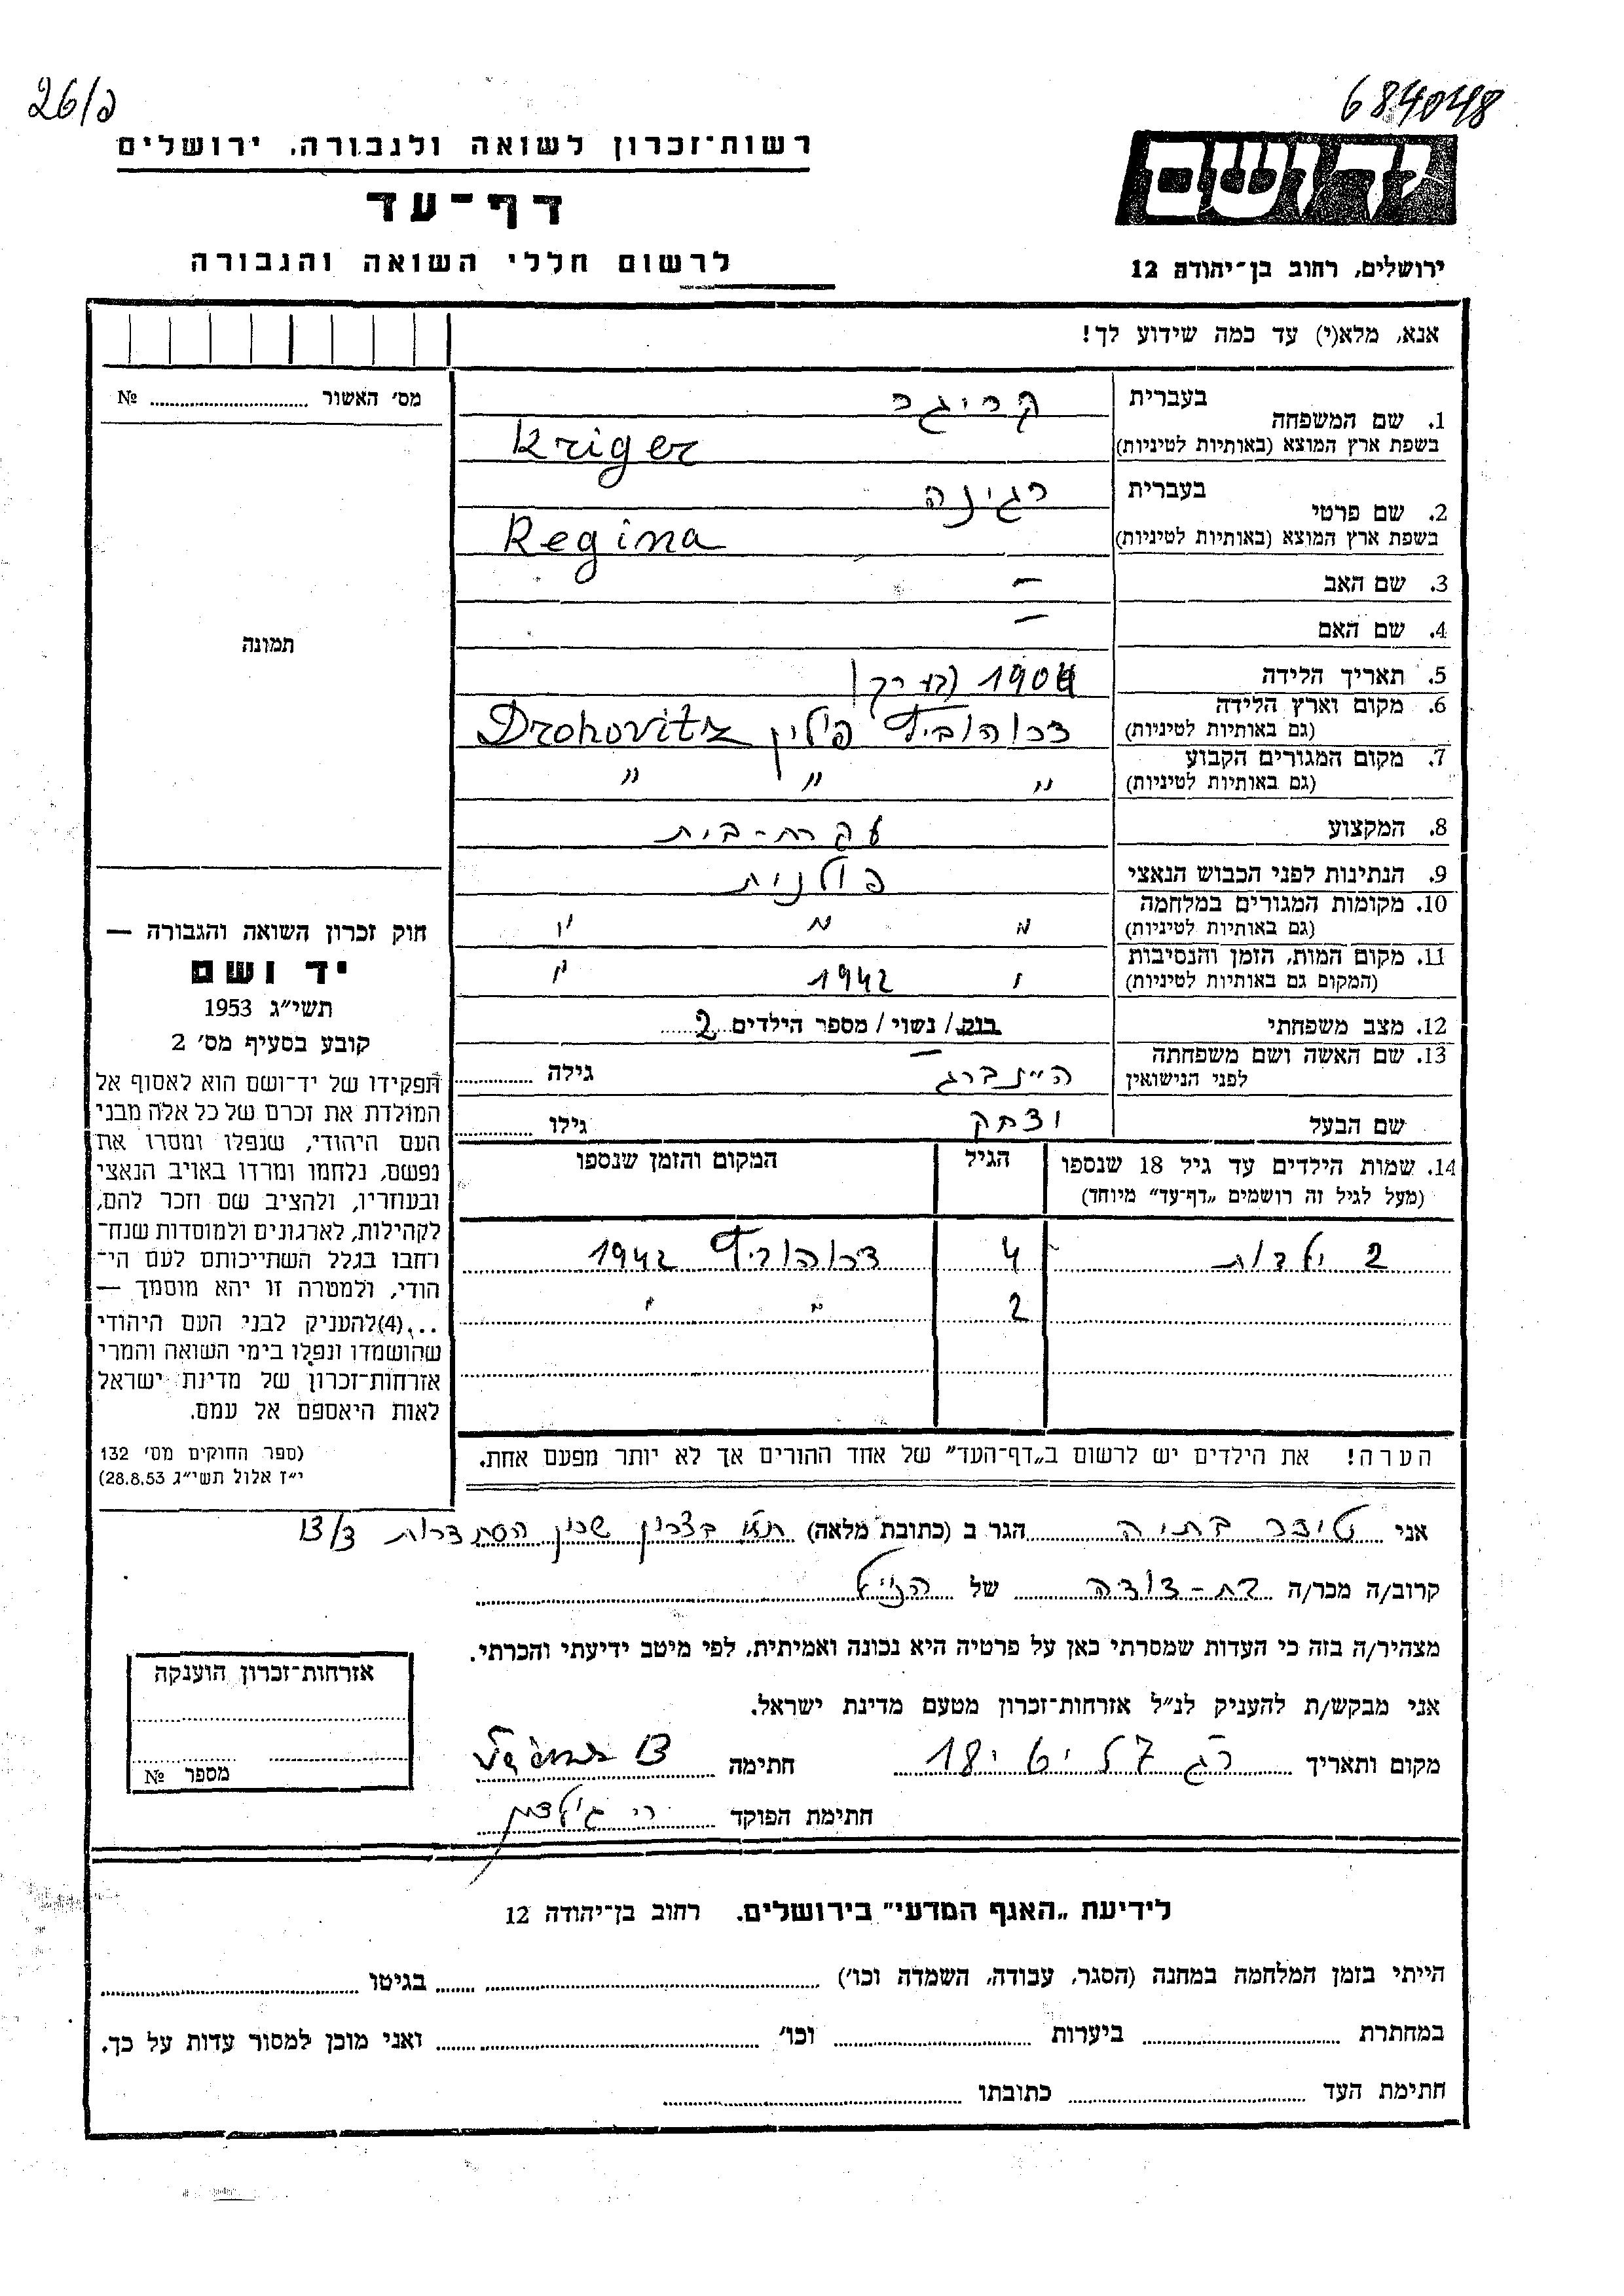 26/כ
684048
רשות־זכרון לשואה ולגבורה, ירושלים
דף־עד
לרשום חללי השואה והגבורה
יד ושם
ירושלים, רחוב בן־יהודה 12
אנא, מלא(י) עד כמה שידוע לך!
מס׳ האשור № 
בעברית קריגר
1. שם המשפחה
בשפת ארץ המוצא (באותיות לטיניות) Kriger
בעברית רגינה
2. שם פרטי
בשפת ארץ המוצא (באותיות לטיניות) Regina
3. שם האב —
4. שם האם —
תמונה
5. תאריך הלידה 1904 (בערך)
6. מקום וארץ הלידה
(גם באותיות לטיניות) דרוהוביץ פולין Drohovitz
7. מקום המגורים הקבוע
(גם באותיות לטיניות) " " "
8. המקצוע עקרת-בית
9. הנתינות לפני הכבוש הנאצי פולנית
10. מקומות המגורים במלחמה
(גם באותיות לטיניות) " " "
11. מקום המות, הזמן והנסיבות
(המקום גם באותיות לטיניות) " 1942 "
12. מצב משפחתי רוק/ נשוי/ מספר הילדים 2
13. שם האשה ושם משפחתה
לפני הנישואין היינברג גילה
שם הבעל יצחק גילו
14. שמות הילדים עד גיל 18 שנספו
(מעל לגיל זה רושמים „דף־עד״ מיוחד)
הגיל
המקום והזמן שנספו
2 ילדות 4 דרוהוביץ 1942
2 " "
הערה! את הילדים יש לרשום ב„דף־העד״ של אחד ההורים אך לא יותר מפעם אחת.
חוק זכרון השואה והגבורה —
יד ושם
תשי״ג 1953
קובע בסעיף מס׳ 2
תפקידו של יד־ושם הוא לאסוף אל
המולדת את זכרם של כל אלה מבני
העם היהודי, שנפלו ומסרו את
נפשם, נלחמו ומרדו באויב הנאצי
ובעוזריו, ולהציב שם וזכר להם,
לקהילות, לארגונים ולמוסדות שנח־
רחבו בגלל השתייכותם לעם הי־
הודי, ולמטרה זו יהא מוסמך —
...(4)להעניק לבני העם היהודי
שהושמדו ונפלו בימי השואה והמרי
אזרחות־זכרון של מדינת ישראל
לאות היאספם אל עמם.
(ספר החוקים מס׳ 132
י״ז אלול תשי״ג 28.8.53)
אני טיזר בתיה הגר ב (כתובת מלאה) ביצרון שכון הסתדרות
קרוב/ה מכר/ה בת-דודה של הנ״ל
מצהיר/ה בזה כי העדות שמסרתי כאן על פרטיה היא נכונה ואמיתית, לפי מיטב ידיעתי והכרתי.
אני מבקש/ת להעניק לנ״ל אזרחות־זכרון מטעם מדינת ישראל.
מקום ותאריך חתימה
חתימת הפוקד
אזרחות־זכרון הוענקה
מספר №
לידיעת „האגף המדעי״ בירושלים. רחוב בן־יהודה 12
הייתי בזמן המלחמה במחנה (הסגר, עבודה, השמדה וכו׳) בגיטו
במחתרת ביערות וכו׳ ואני מוכן למסור עדות על כך.
חתימת העד כתובתו